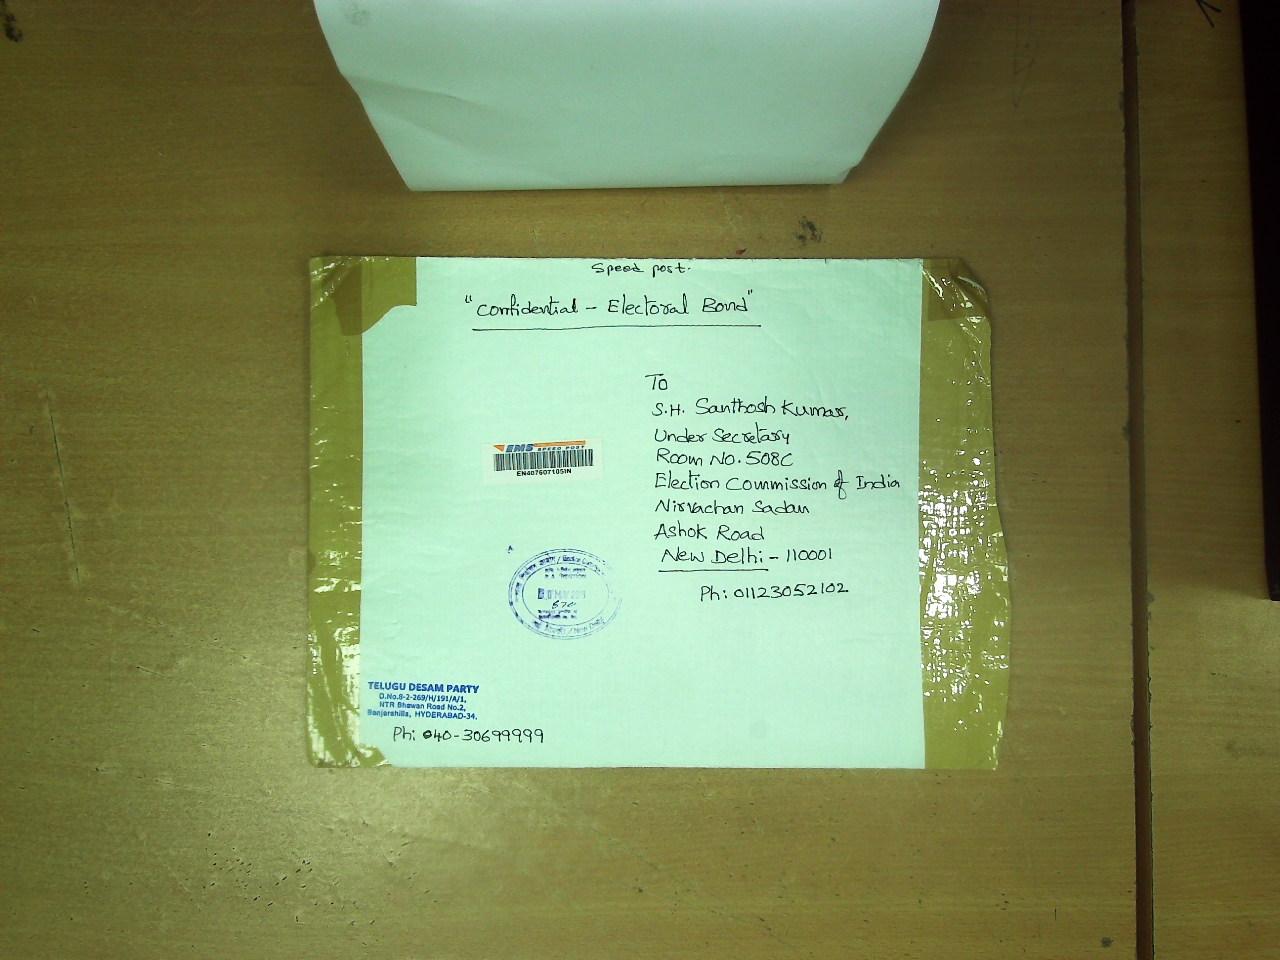 Speed post.
"Confidential - Electoral Bond"
To
S.H. Santhosh Kumar,
Under Secretary
Room No. 508C
Election Commission of India
Nirvachan Sadan
Ashok Road
New Delhi - 110001
Ph: 01123052102
EMS SPEED POST
EN407607105IN
MAY 2019
/ New Delhi
TELUGU DESAM PARTY
D.No.8-2-269/H/191/A/1,
NTR Bhawan Road No.2,
Banjarahills, HYDERABAD-34.
Ph: 040-30699999